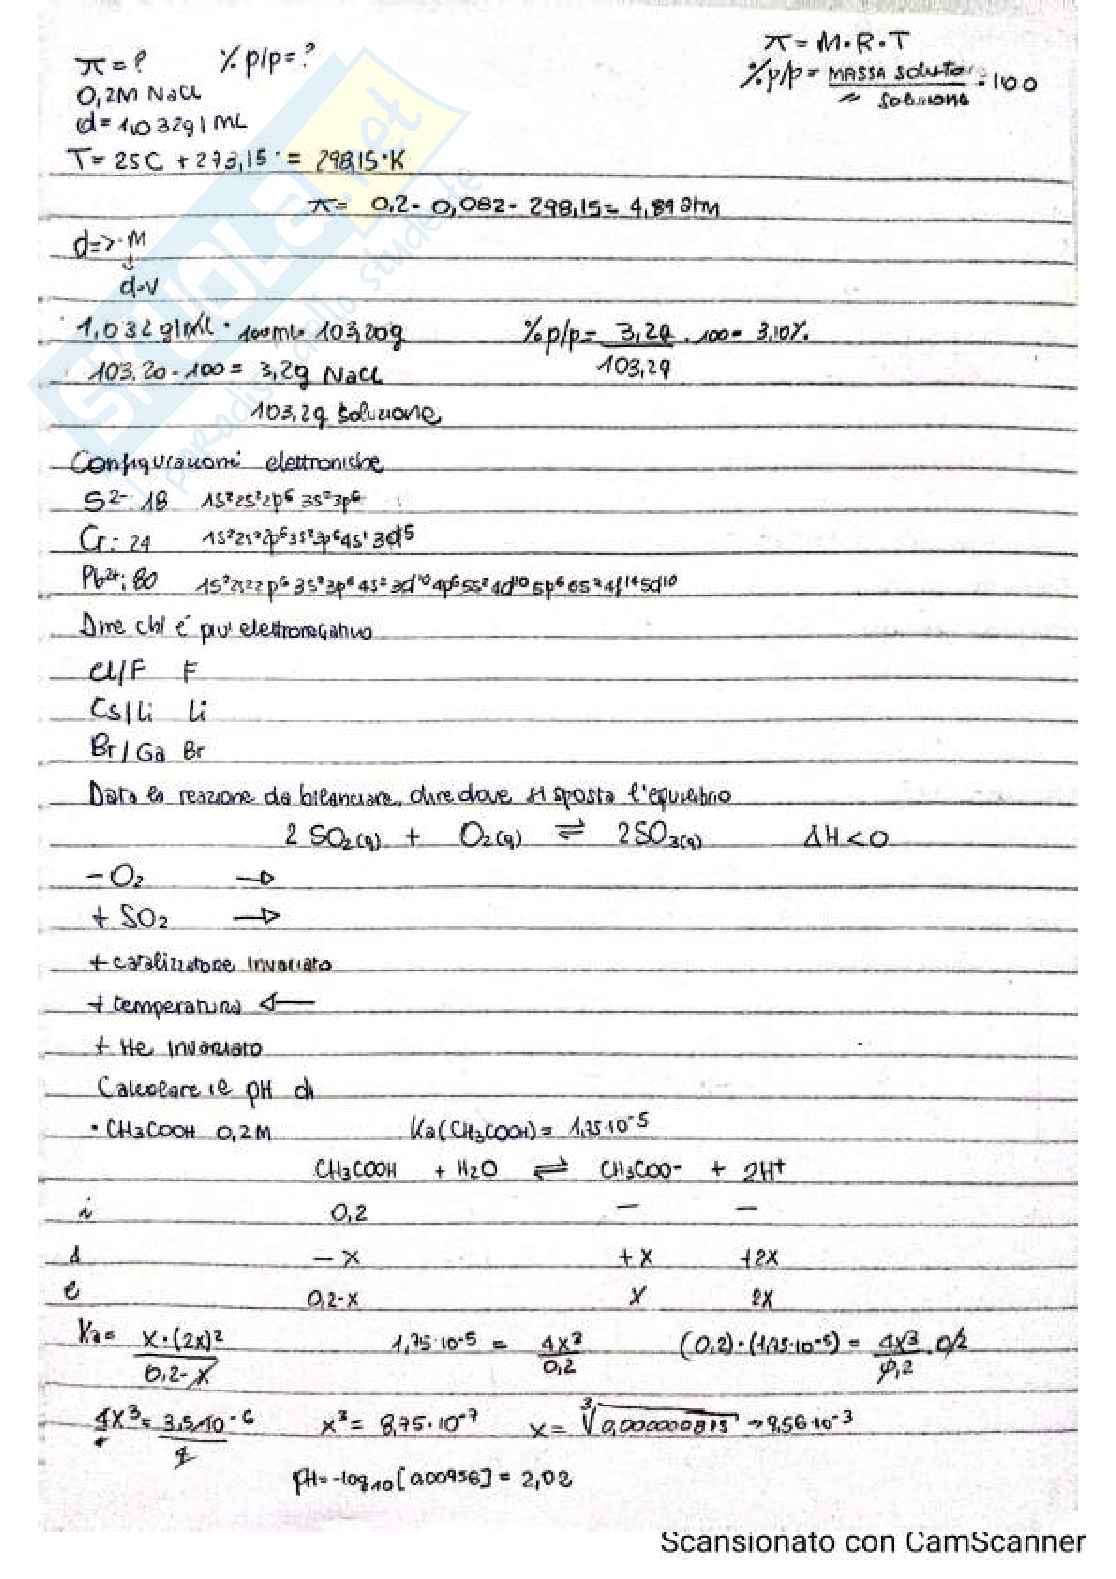 π = ? % p/p = ?
π = M · R · T
% p/p = MASSA soluto / " soluzione · 100
0,2M NaCl
d = 1,032 g/mL
T = 25C + 273,15 = 298,15°K
π = 0,2 - 0,082 - 298,15 = 4,89 atm
d => · M
↓
d·V
1,032 g/mL · 100mL = 103,20g
% p/p = 3,2g / 103,2g . 100 = 3,10%
103,20 - 100 = 3,2g NaCl
103,2g soluzione
Configurazioni elettroniche
S²⁻ 18 1s²2s²2p⁶ 3s²3p⁶
Cr: 24 1s²2s²2p⁶3s²3p⁶4s¹3d⁵
Pb²⁺: 80 1s²2s22p⁶ 3s²3p⁶ 4s² 3d¹⁰ 4p⁶5s² 4d¹⁰ 5p⁶ 6s² 4f¹⁴5d¹⁰
Dire chi è più elettronegativo
Cl/F F
Cs/Li Li
Br/Ga Br
Data la reazione da bilanciare, dire dove si sposta l'equilibrio
2 SO₂(g) + O₂(g) ⇌ 2SO₃(g) ΔH < 0
- O₂ →
+ SO₂ →
+ catalizzatore invariato
+ temperatura ←
+ He invariato
Calcolare il pH di
• CH₃COOH 0,2M Ka(CH₃COOH) = 1,75·10⁻⁵
CH₃COOH + H₂O ⇌ CH₃COO⁻ + 2H⁺
i 0,2 — —
Δ - x + x + 2x
e 0,2-x x 2x
Ka = x·(2x)² / 0,2-x
1,75·10⁻⁵ = 4x³ / 0,2
(0,2)·(1,75·10⁻⁵) = 4x³ / 0,2 · 0,2
4x³ = 3,5·10⁻⁶ x³ = 8,75·10⁻⁷ x = ³√0,000000875 → 9,56·10⁻³
pH = -log₁₀[0,00956] = 2,02
Scansionato con CamScanner
SKUOLA.net
paradiso dello studente